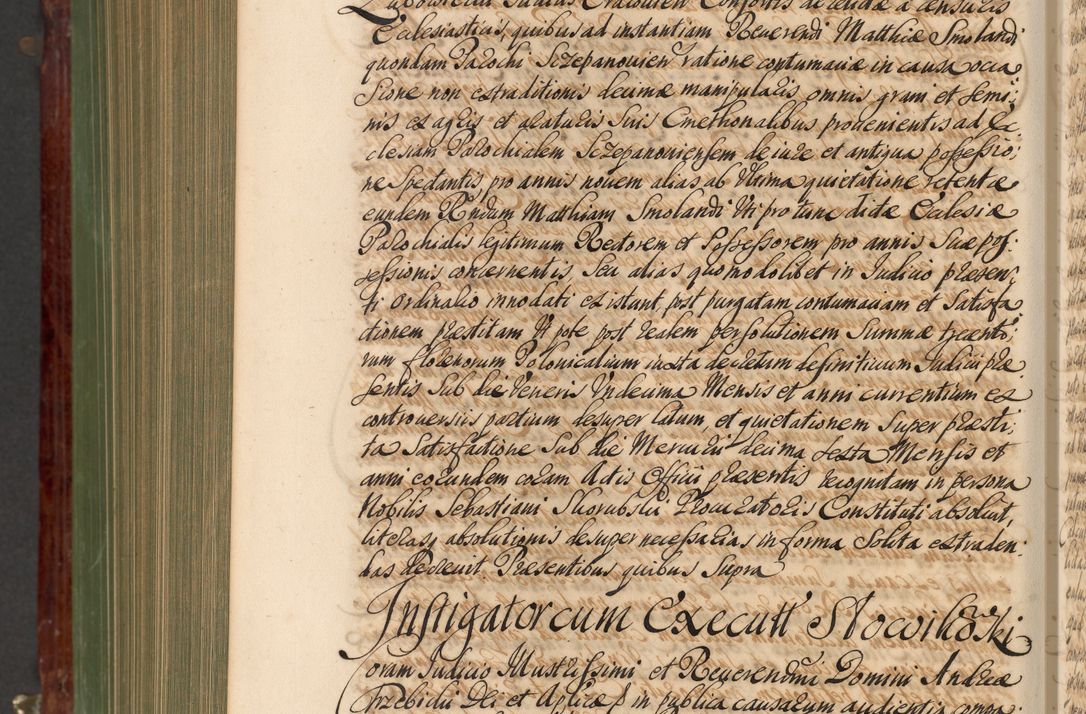 Ecclesiasticis, quibus ad instantiam Reverendi Matthiæ Smolandi
quondam Parochi Sczepanovien ratione contumaciæ in causa occa
sione non extraditionis decimæ manipularis omnis grani et semi:
nis ex agris et araturis suis Cmethonalibus provenientis ad Ec
clesiam Parochialem Sczepanoviensem de iure et antiqua possessio:
ne spectantis, pro annis novem alias ab Ultima quietatione retentæ
eundem Rndum Matthiam Smolandi Uti pro tunc dictæ Ecclesiæ
Parochialis legitimum Rectorem et Possessorem pro annis suæ pos:
sessionis concernentis, seu alias quomodolibet in Judicio præsen:
ti Ordinario innodati existant, post purgatam contumaciam et Satisfa
ctionem præstitam Ut pote post realem persolutionem Summæ trecento
rum florenorum Polonicalium iuxta decretum definitivum Judicii præ
sentis Sub die Veneris Undecima Mensis et anni currentium ex
controversiis partium desuper latum, et quietationem super præsti:
ta Satisfactione Sub die Mercurii decima sexta Mensis et
anni eorundem coram Actis Officii præsentis recognitam in persona
Nobilis Sebastiani Skorubski Procuratoris Constituti absolvit,
literas, absolutionis desuper necessarias in forma Solita extraden:
das decrevit. Præsentibus quibus supra
Instigator cum Execut Slowikowski
oram Judicio Illustrissimi et Reverendmi Domini Andreæ
Trzebicki Dei et Aplicæ S in publica causarum audientia compa: